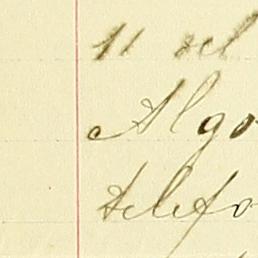 11
Algo
telefo